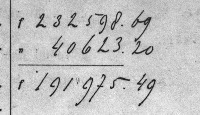 " 232598.69
" 40623.20
" 191975.49